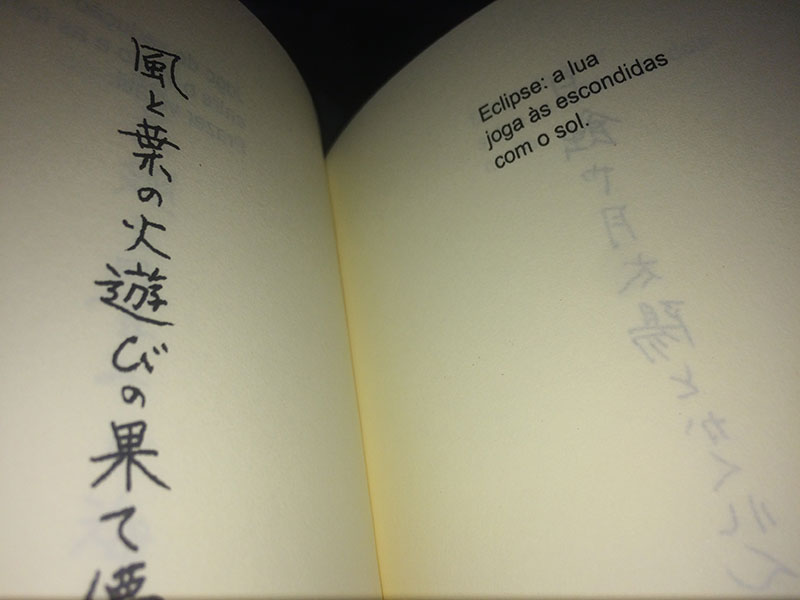 風と葉の火遊びの果て
Eclipse: a lua
joga às escondidas
com o sol.